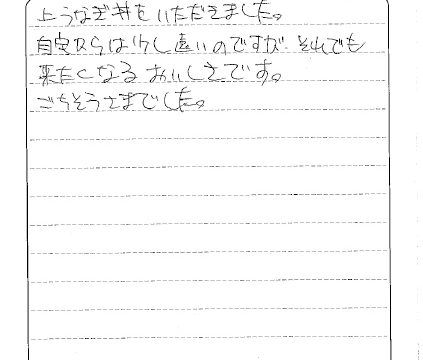 上うなぎ丼をいただきました。
自宅からは少し遠いのですが、それでも
来たくなるおいしさです。
ごちそうさまでした。